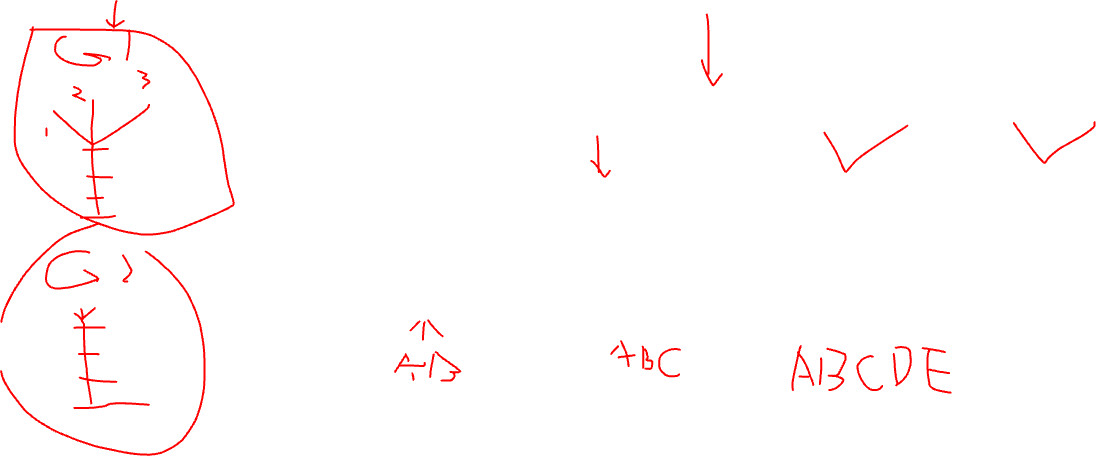 G1
3
2
1
G2
AB ABC ABCDE